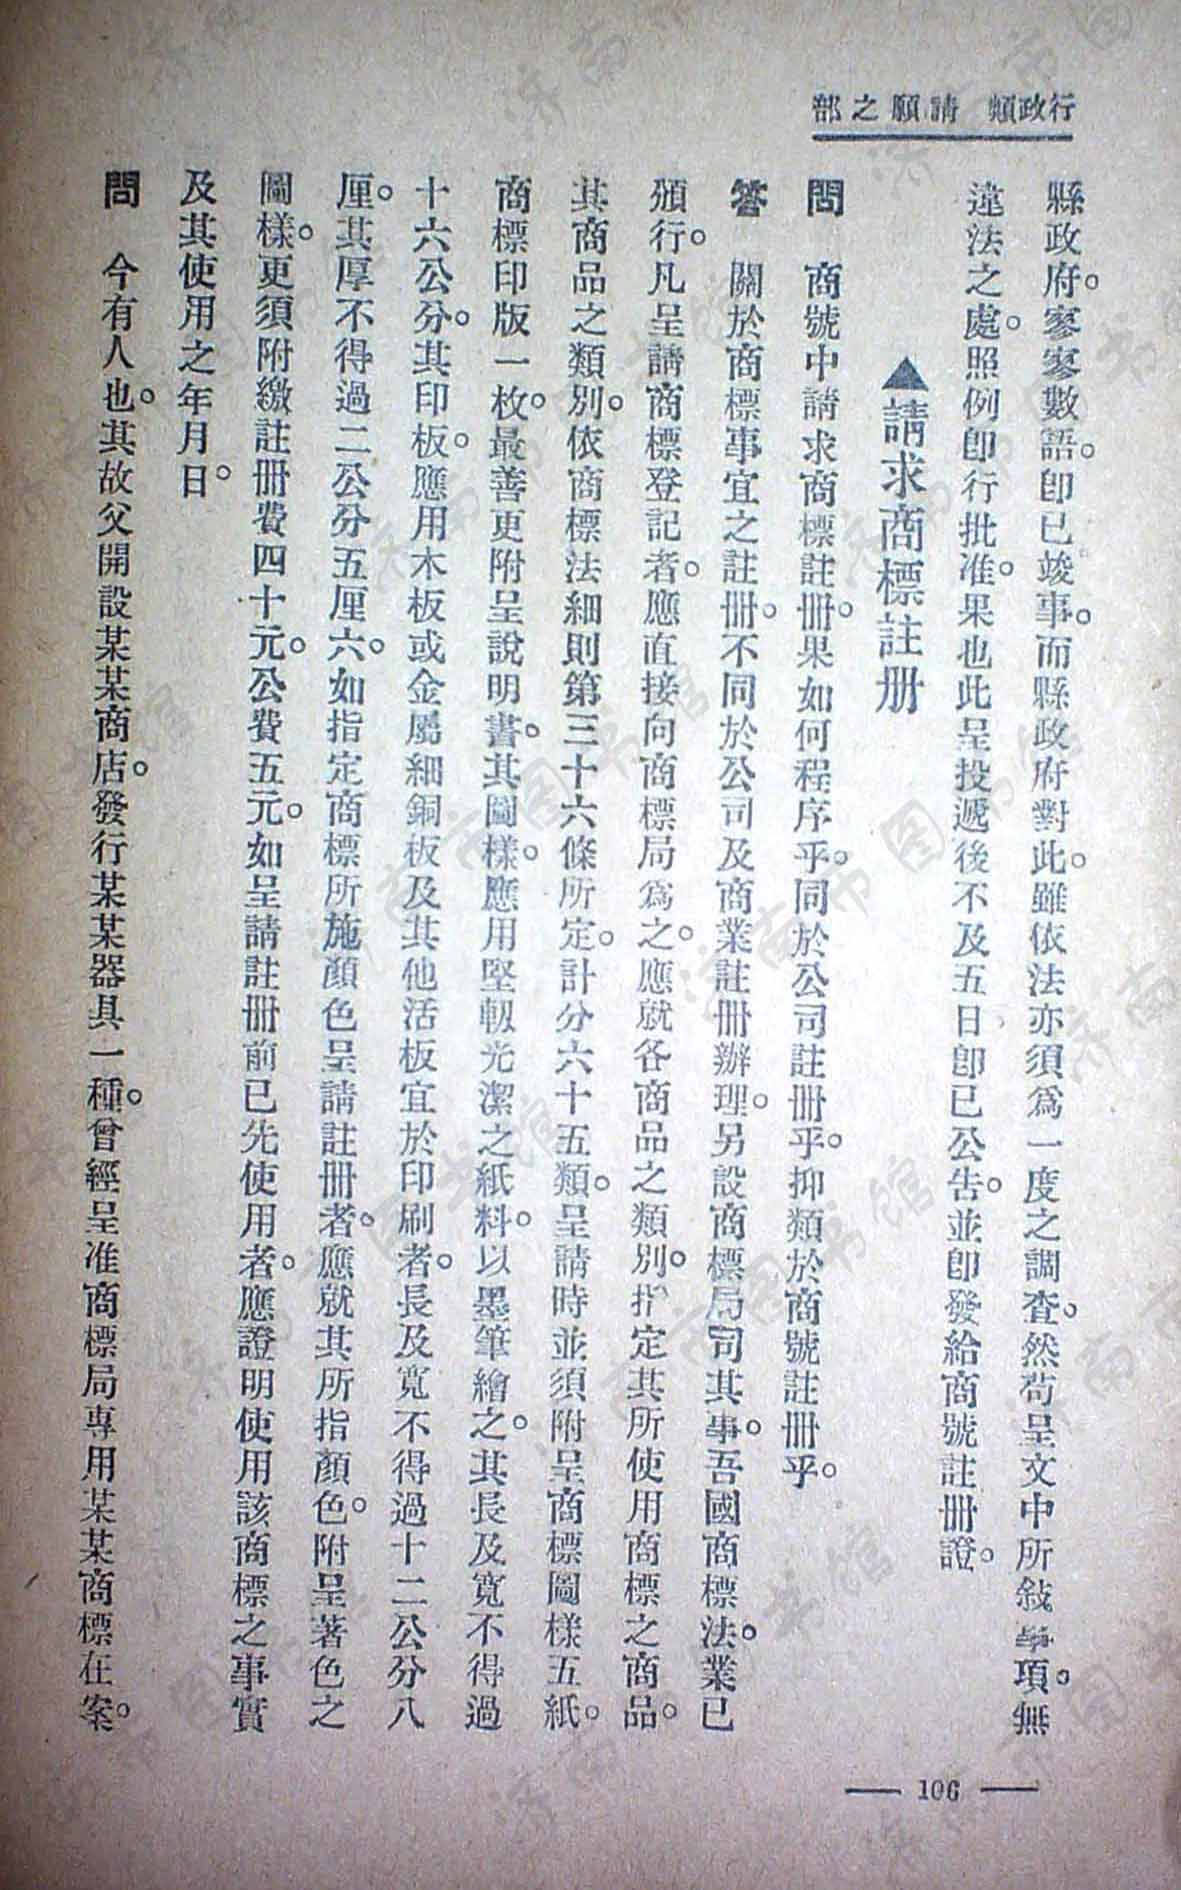 行政類　請願之部
縣政府。寥寥數語。卽已竣事。而縣政府對此。雖依法亦須爲一度之調查。然苟呈文中所敍事項。無
違法之處。照例卽行批准。果也此呈投遞後不及五日卽已公告。並卽發給商號註冊證。
▲請求商標註册
問　商號中請求商標註冊。果如何程序乎。同於公司註冊乎。抑類於商號註冊乎。
答　關於商標事宜之註冊。不同於公司及商業註冊辦理。另設商標局司其事。吾國商標法。業已
頒行。凡呈請商標登記者。應直接向商標局爲之。應就各商品之類別。指定其所使用商標之商品。
其商品之類別。依商標法細則第三十六條所定。計分六十五類。呈請時並須附呈商標圖樣五紙。
商標印版一枚。最善更附呈說明書。其圖樣。應用堅韌光潔之紙料。以墨筆繪之。其長及寬不得過
十六公分。其印板。應用木板或金屬細銅板及其他活板宜於印刷者。長及寬不得過十二公分八
厘。其厚不得過二公分五厘六。如指定商標所施顏色呈請註冊者。應就其所指顏色。附呈著色之
圖樣。更須附繳註冊費四十元。公費五元。如呈請註冊前已先使用者。應證明使用該商標之事實
及其使用之年月日。
問　今有人也。其故父開設某某商店。發行某某器具一種。曾經呈准商標局專用某某商標在案。
— 106 —
济南市图书馆